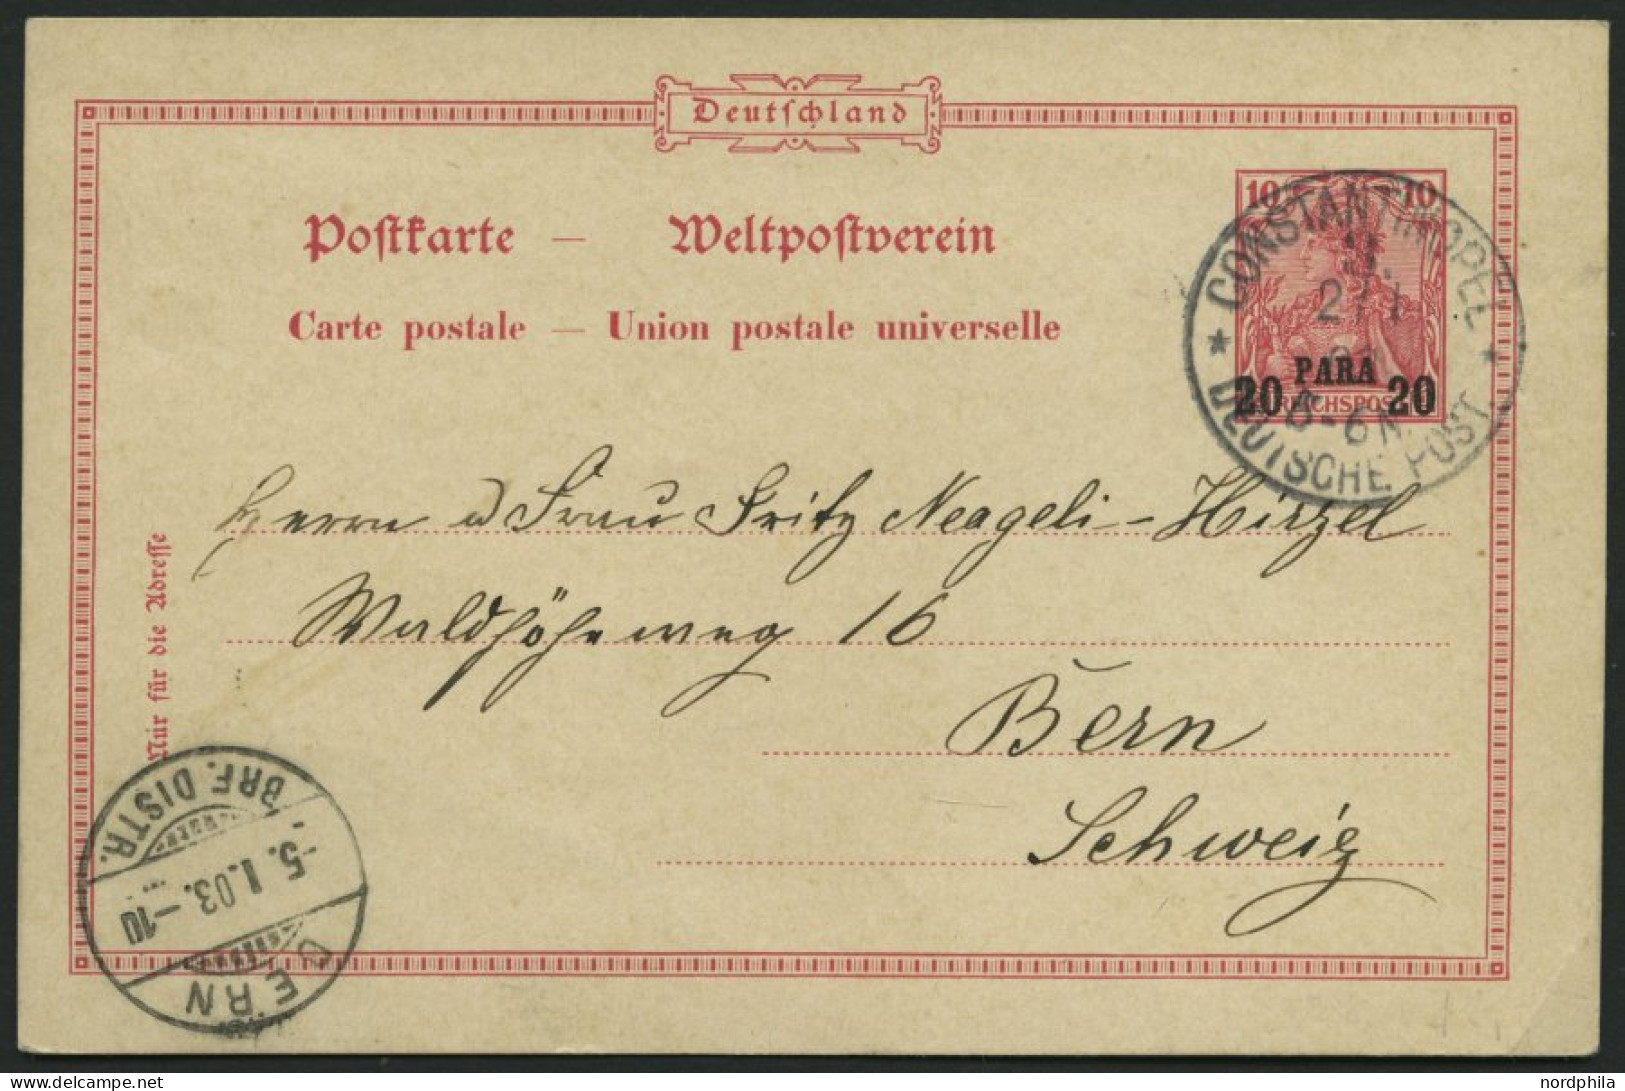 Deutschland
Postkarte — Weltpostverein
Carte postale — Union postale universelle
10 10
REICHSPOST
20 PARA 20
* CONSTANTINOPEL *
2/1
5-6N.
DEUTSCHE POST.
Herrn u Frau Fritz Neageli-Hirzel
Waldhöheweg 16
Bern
Schweiz
Nur für die Adresse
BERN
-5.I.03.-10
BRF. DISTR.
nordphila